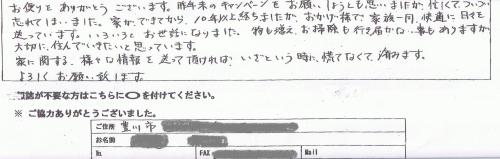 お便りとありがとうございます。昨年末のキャンペーンをお願いしようと思いますが、忙しくてついつい
忘れてしまいました。家ができてから、10年以上経ちましたが、おかげ様で、家族一同、快適に日々を
送っています。いろいろとお世話になりました。物も増え、お掃除も行き届かない事もありますが
大切に、住んでいきたいと思っています。
家に関する、様々な情報を送って頂ければ、いざという時に、慌てなくて済みます。
よろしくお願い致します。
誌が不要な方はこちらに○を付けてください。
※ ご協力ありがとうございました。
ご住所 豊川市
お名前
℡ FAX Mail